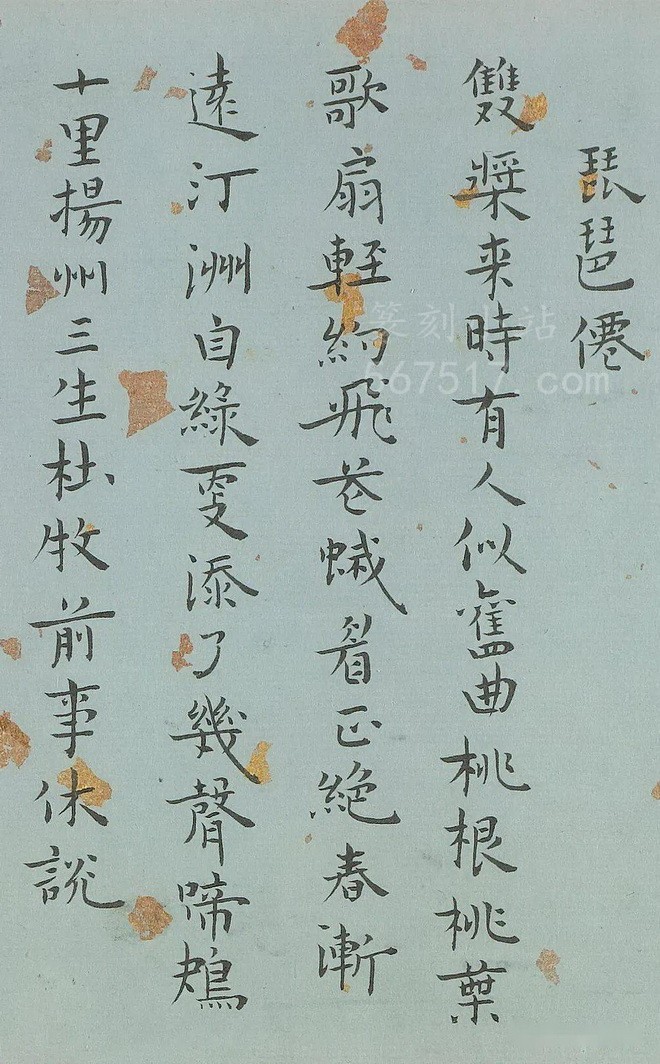 琵琶僊
雙槳来時有人似舊曲桃根桃葉
歌扇輕約飛花蛾眉正絕春漸
遠汀洲自綠更添了幾聲啼鴂
十里揚州三生杜牧前事休說
篆刻 站
667517.com